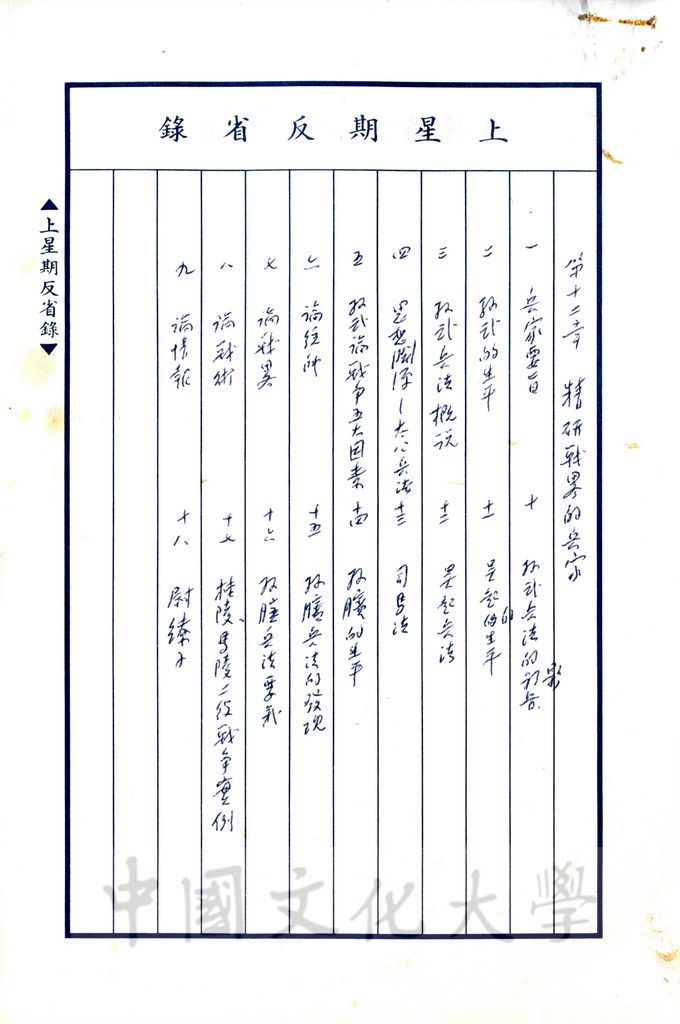 上星期反省錄
第十二章 精研戰畧的兵家
一 兵家要旨
二 孙武的生平
三 孙武兵法概说
四 思想淵源—太公兵法
五 孙武論戰争五大因素
六 論统帅
七 論戰畧
八 論戰術
九 論情報
十 孙武兵法的影
十一 吴起的生平
十二 吴起兵法
十三 司馬法
十四 孙臏的生平
十五 孙臏兵法的發現
十六 孙臏兵法要義
十七 桂陵、馬陵二役戰争實例
十八 尉繚子
▲上星期反省錄▼
中國文化大學